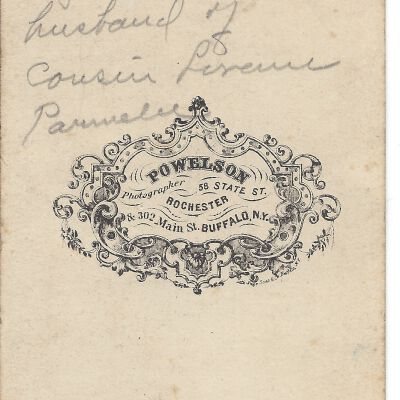 husband of
Cousin
Parmelee
POWELSON
Photographer 58 STATE ST.
ROCHESTER
& 302 Main St. BUFFALO, N.Y.